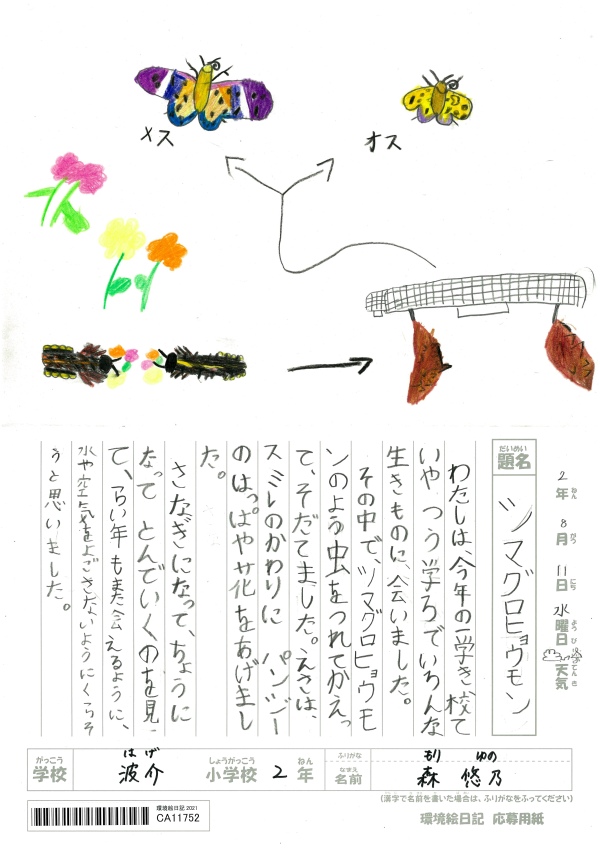 メス
オス
2年8月11日水曜日
天気
だいめい
題名
ツマグロヒョウモン
わたしは、今年の一学き、校て
いや つう学ろでいろんな
生きものに、会いました。
その中で、ツマグロヒョウモ
ンのよう虫をつれてかえっ
て、そだてました。えさは、
スミレのかわりに パンジー
のはっぱや花をあげまし
た。
さなぎになって、ちょうに
なって とんでいくのを見
て、らい年もまた会えるように、
水や空気をよごさないようにくらそ
うと思いました。
がっこう
学校
はげ
波介
しょうがっこう
小学校
2
ねん
年
ふりがな
もり ゆの
なまえ
名前
森 悠乃
(漢字で名前を書いた場合は、ふりがなをふってください)
環境絵日記 2021
CA11752
環境絵日記 応募用紙